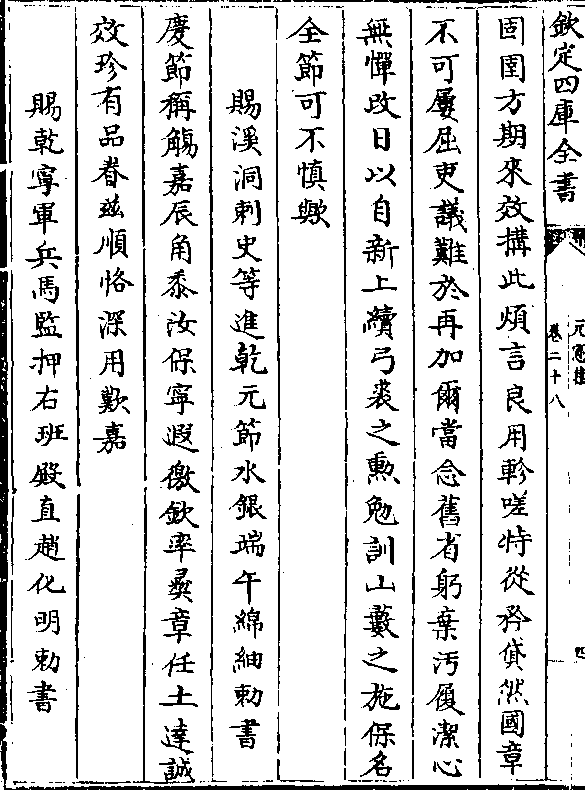 欽定四庫全書
元憲集
卷二十八
四
固圉方期來效搆此煩言良用軫嗟特從矜貸然國章
不可屢屈吏議難於再加爾當念舊省躬棄汚履潔心
無憚改日以自新上續弓裘之勲勉訓山藪之施保名
全節可不慎歟
賜溪洞刺史等進乾元節水銀端午綿紬勅書
慶節稱觴嘉辰角黍汝保寧遐徼欽率彛章任土達誠
效珍有品眷兹順恪深用歎嘉
賜乾寧軍兵馬監押右班殿直趙化明勅書